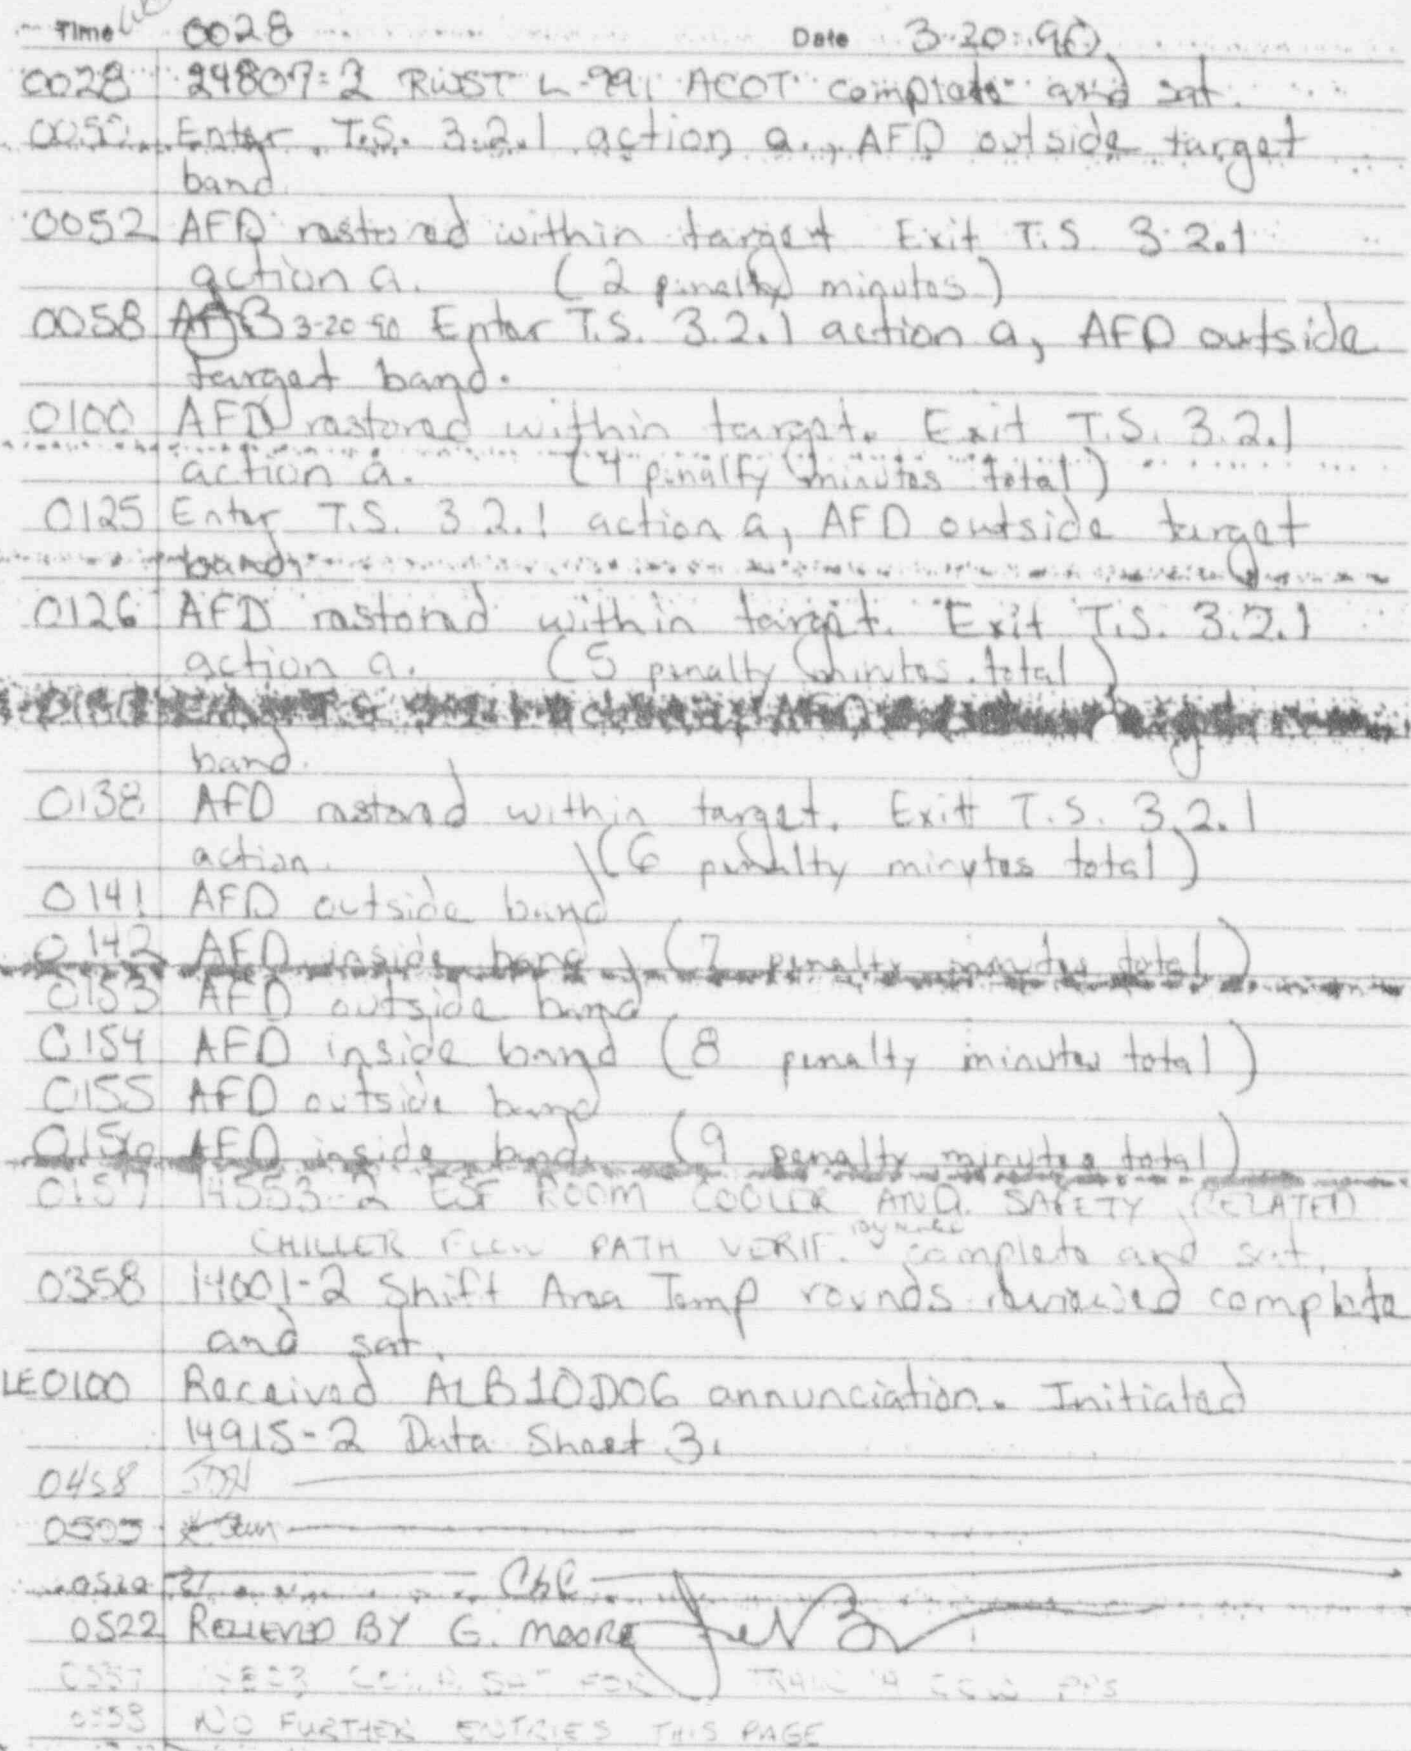 Time 0028 Date 3-20-90
0028 24807-2 RWST L-991 ACOT complete and sat.
0050 Enter T.S. 3.2.1 action a., AFD outside target
band.
0052 AFD restored within target Exit T.S. 3.2.1
action a. (2 penalty minutes)
0058 3-20-90 Enter T.S. 3.2.1 action a, AFD outside
target band.
0100 AFD restored within target. Exit T.S. 3.2.1
action a. (4 penalty minutes total)
0125 Enter T.S. 3.2.1 action a, AFD outside target
band.
0126 AFD restored within target. Exit T.S. 3.2.1
action a. (5 penalty minutes total)
Enter T.S. 3.2.1 action a, AFD
band.
0138 AFD restored within target. Exit T.S. 3.2.1
action. (6 penalty minutes total)
0141 AFD outside band
0142 AFD inside band (7 penalty minutes total)
0153 AFD outside band
0154 AFD inside band (8 penalty minutes total)
0155 AFD outside band
0156 AFD inside band. (9 penalty minutes total)
0157 14553-2 ESF ROOM COOLER AND SAFETY RELATED
CHILLER FLOW PATH VERIF. complete and sat.
0358 14001-2 Shift Area Temp rounds reviewed complete
and sat.
LE0100 Received ALB10D06 annunciation. Initiated
14915-2 Data Sheet 3.
0458
0505
0520
0522 RELIEVED BY G. MOORE
SAT FOR TRAIN A CCW PPS
0558 NO FURTHER ENTRIES THIS PAGE